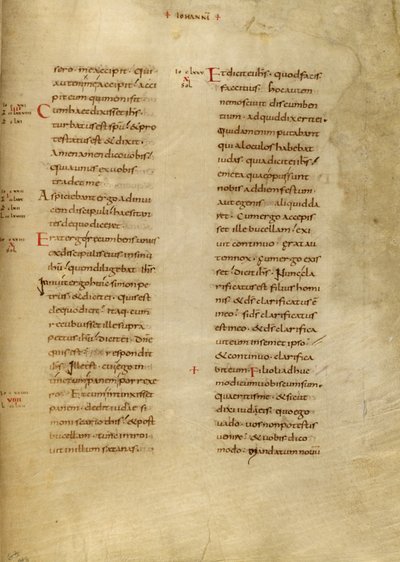 + IOHANNI +
sero · meaccipit · Qui
autem me accipit · acci
pit eum qui me misit
Cum haec dixisset ihs
turbatus est spu & pro
testatus est & dixit
Amen amen dico uobis
quia unus ex uobis
tradet me
Aspiciebant ergo ad inui
cem discipuli haesitan
tes de quo diceret
Erat ergo recumbens unus
ex discipulis eius in sinu
ihu quem diligebat ihs
Innuit ergo huic simon pe
trus & dicit ei · quis est
de quo dicit · itaq · cum
recubuisset ille supra
pectus ihu dicit ei · Dne
quis est · respondit
ihs · Ille est · cui ego in
tinctum panem porrexe
ro · Et cum intinxisset
panem · dedit iudae si
monis cariothis · & post
bucellam · tunc introi
uit in illum satanas ·
Et dicit ei ihs · quod facis
fac citius · hoc autem
nemo sciuit discumben
tium · ad quid dixerit ei ·
quidam enim putabant
quia loculos habebat
iudas · quia dicit ei ihs
eme ea quae opus sunt
nobis ad diem festum
aut egenis aliquid da
r& · Cum ergo accepis
set ille bucellam · exi
uit continuo · erat au
tem nox · Cum ergo exis
set · dicit ihs · Nunc cla
rificatus est filius homi
nis · & ds clarificatus e
in eo · si ds clarificatus
est in eo · & ds clarifica
uit eum in semet ipso ·
& continuo clarifica
bit eum · Filioli adhuc
modicum uobiscum sum ·
quaeritis me · & sicut
dixi iudaeis · quo ego
uado · uos non potestis
uenire · & uobis dico
modo · Mandatum nouu